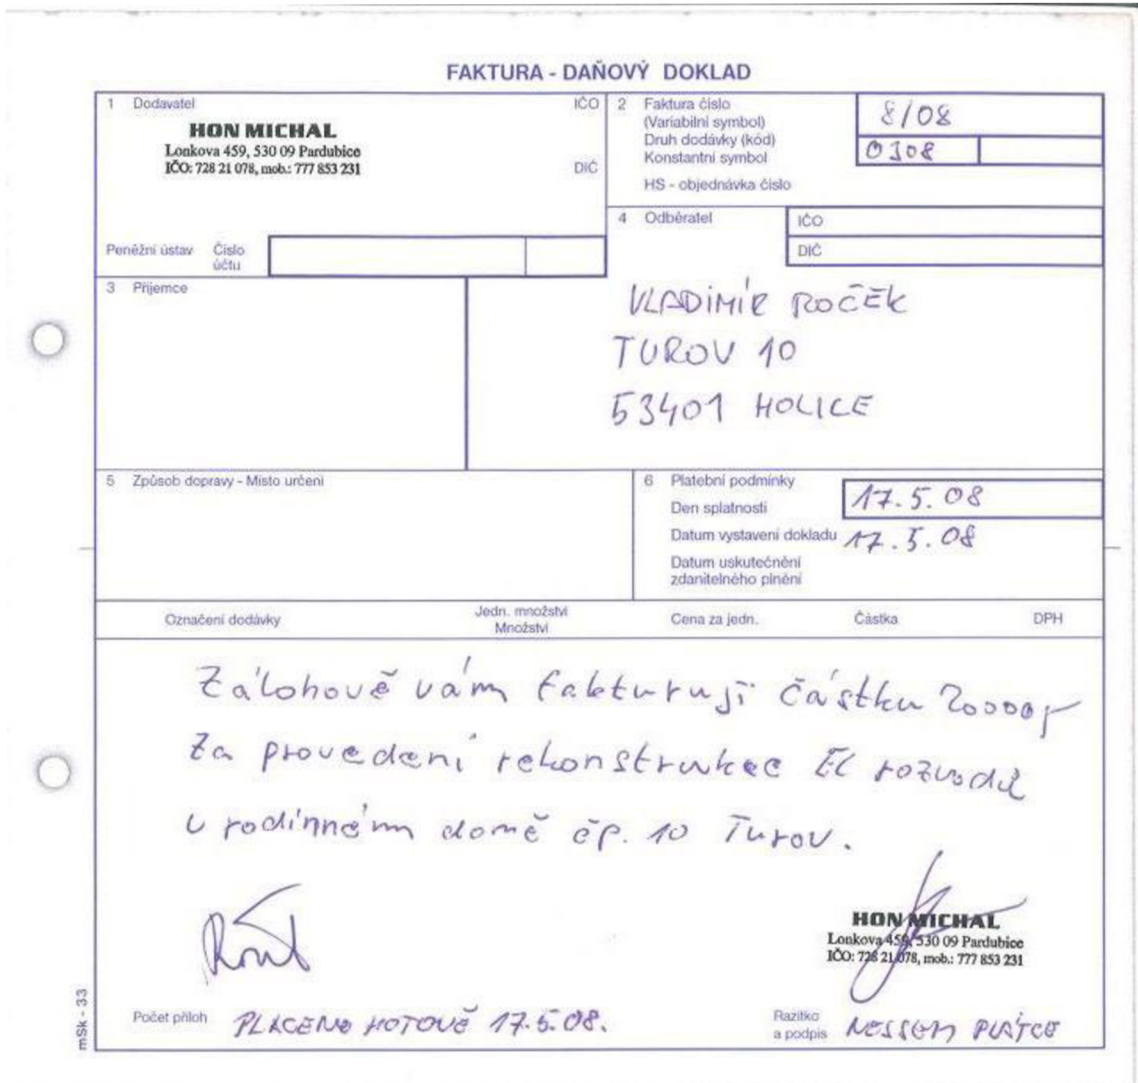 FAKTURA - DAŇOVÝ DOKLAD
1 Dodavatel IČO
HON MICHAL
Lonkova 459, 530 09 Pardubice
IČO: 728 21 078, mob.: 777 853 231
DIČ
Peněžní ústav Číslo účtu
2 Faktura číslo
(Variabilní symbol) 8/08
Druh dodávky (kód)
Konstantní symbol 0308
HS - objednávka číslo
4 Odběratel IČO
DIČ
3 Příjemce
VLADIMÍR ROČEK
TUROV 10
53401 HOLICE
5 Způsob dopravy - Místo určení
6 Platební podmínky
Den splatnosti 17.5.08
Datum vystavení dokladu 17.5.08
Datum uskutečnění
zdanitelného plnění
Označení dodávky Jedn. množství Cena za jedn. Částka DPH
Množství
Zálohově vám fakturuji částku 20000,-
za provedení rekonstrukce El rozvodů
v rodinném domě čp. 10 Turov.
HON MICHAL
Lonkova 459, 530 09 Pardubice
IČO: 728 21 078, mob.: 777 853 231
Počet příloh PLACENO HOTOVĚ 17.5.08.
Razítko
a podpis NEJSEM PLÁTCE
mSk - 33